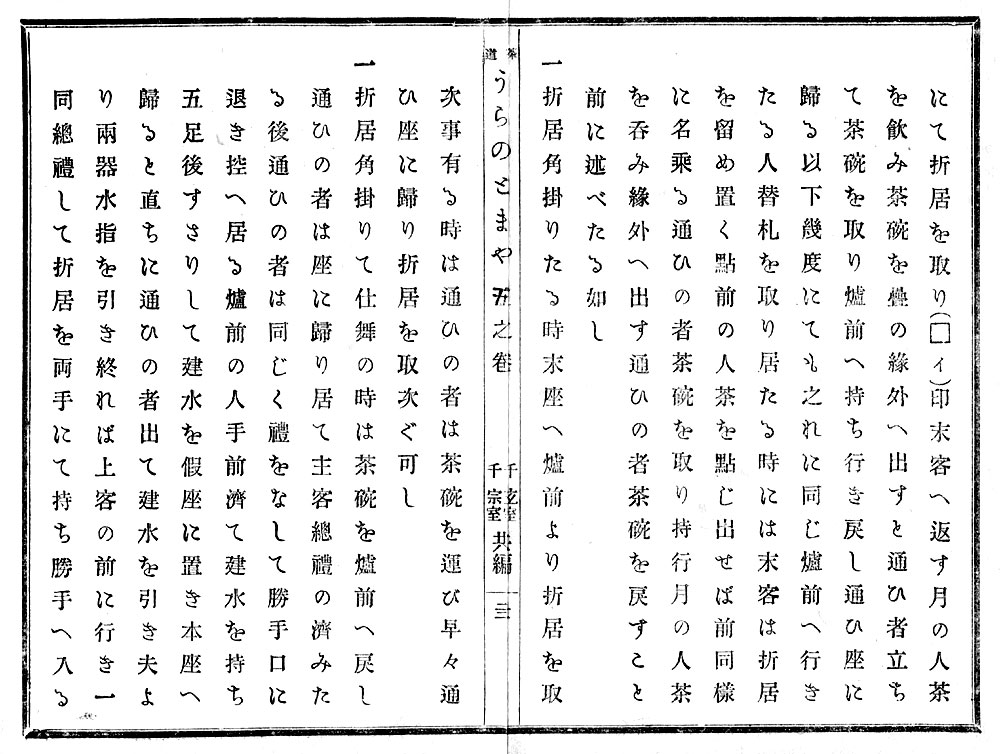 にて折居を取り(□ィ)印末客へ返す月の人茶
を飮み茶碗を疊の緣外へ出すと通ひ者立ち
て茶碗を取り爐前へ持ち行き戾し通ひ座に
歸る以下幾度にても之れに同じ爐前へ行き
たる人替札を取り居たる時には末客は折居
を留め置く點前の人茶を點じ出せば前同樣
に名乘る通ひの者茶碗を取り持行月の人茶
を呑み緣外へ出す通ひの者茶碗を戾すこと
前に述べたる如し
一折居角掛りたる時末座へ爐前より折居を取
茶道 うらのとまや 五之卷 千玄室 千宗室 共編 三
次事有る時は通ひの者は茶碗を運び早々通
ひ座に歸り折居を取次ぐ可し
一折居角掛りて仕舞の時は茶碗を爐前へ戾し
通ひの者は座に歸り居て主客總禮の濟みた
る後通ひの者は同じく禮をなして勝手口に
退き控へ居る爐前の人手前濟て建水を持ち
五足後すさりして建水を假座に置き本座へ
歸ると直ちに通ひの者出て建水を引き夫よ
り兩器水指を引き終れば上客の前に行き一
同總禮して折居を両手にて持ち勝手へ入る